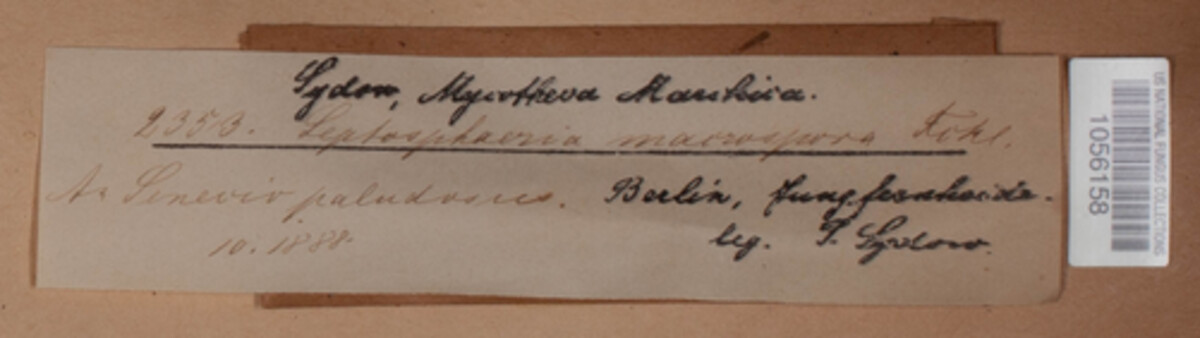 Sydow, Mycotheca Marchica.
2353. Leptosphaeria macrospora Fckl.
An Senecio paludosus. Berlin, Jungfernheide.
10. 1888. leg. P. Sydow.
US NATIONAL FUNGUS COLLECTIONS
1056158